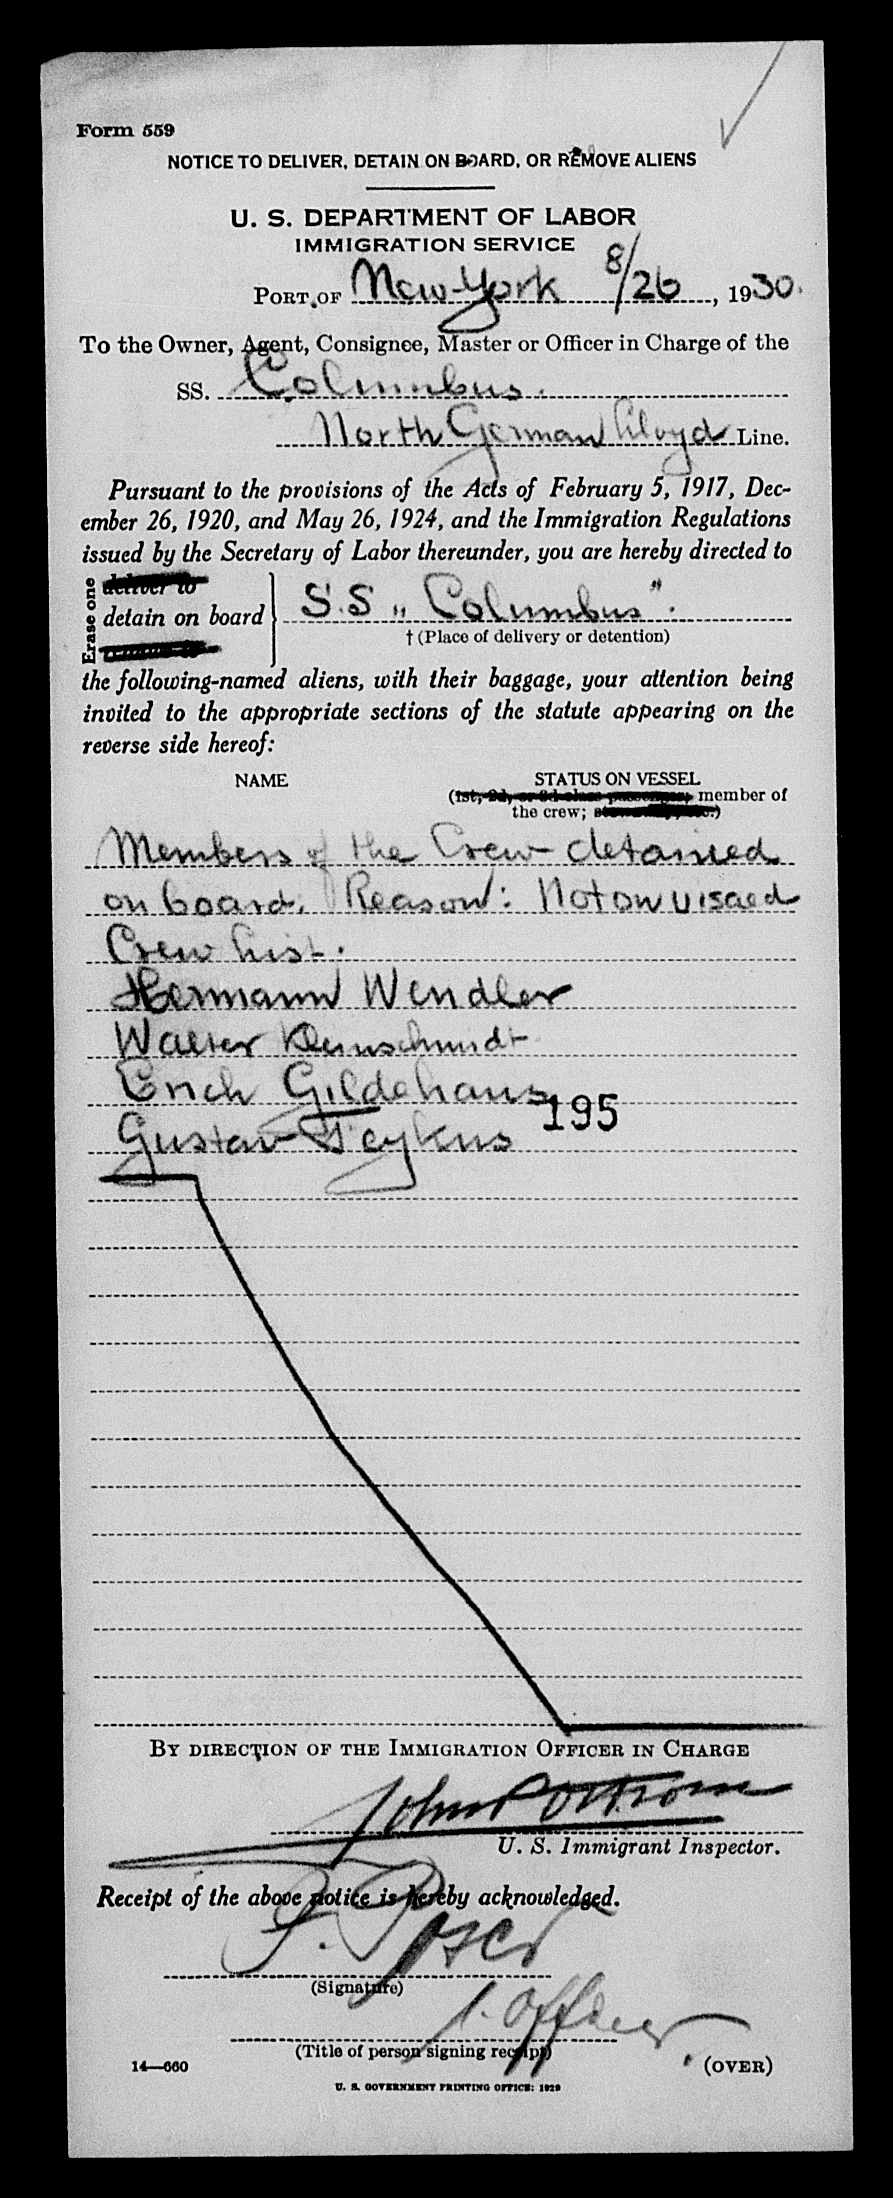 Form 559
NOTICE TO DELIVER, DETAIN ON BOARD, OR REMOVE ALIENS
U. S. DEPARTMENT OF LABOR
IMMIGRATION SERVICE
PORT OF New York 8/26, 1930.
To the Owner, Agent, Consignee, Master or Officer in Charge of the
SS. Columbus.
North German Lloyd Line.
Pursuant to the provisions of the Acts of February 5, 1917, Dec-
ember 26, 1920, and May 26, 1924, and the Immigration Regulations
issued by the Secretary of Labor thereunder, you are hereby directed to
Erase one
deliver to
detain on board S.S „ Columbus".
† (Place of delivery or detention)
the following-named aliens, with their baggage, your attention being
invited to the appropriate sections of the statute appearing on the
reverse side hereof:
NAME STATUS ON VESSEL
(1st, 2d, or 3d class passenger, member of
the crew;
Members of the Crew detained
on board. Reason: Not on visaed
Crew List.
Hermann Wendler
Walter Kleinschmidt
Erich Gildehaus
Gustav Feykus 195
BY DIRECTION OF THE IMMIGRATION OFFICER IN CHARGE
John
U. S. Immigrant Inspector.
Receipt of the above notice is hereby acknowledged.
F.
(Signature)
1. Officer
(Title of person signing receipt)
14—660 (OVER)
U. S. GOVERNMENT PRINTING OFFICE: 1929